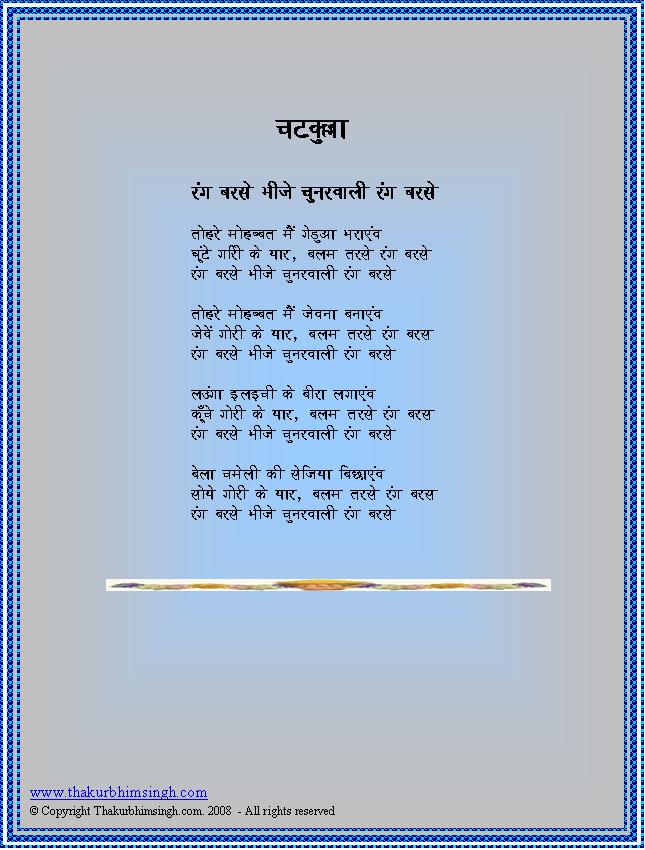 चटकुल्ला
रंग बरसे भीजे चुनरवाली रंग बरसे
तोहरे मोहब्बत मैं गेडुआ भराएंव
घूंटे गोरी के यार, बलम तरसे रंग बरसे
रंग बरसे भीजे चुनरवाली रंग बरसे
तोहरे मोहब्बत मैं जेवना बनाएंव
जेवें गोरी के यार, बलम तरसे रंग बरस
रंग बरसे भीजे चुनरवाली रंग बरसे
लउंगा इलइची के बीरा लगाएंव
कूँचे गोरी के यार, बलम तरसे रंग बरस
रंग बरसे भीजे चुनरवाली रंग बरसे
बेला चमेली की सेजिया बिछाएंव
सोये गोरी के यार, बलम तरसे रंग बरस
रंग बरसे भीजे चुनरवाली रंग बरसे
www.thakurbhimsingh.com
© Copyright Thakurbhimsingh.com. 2008 - All rights reserved